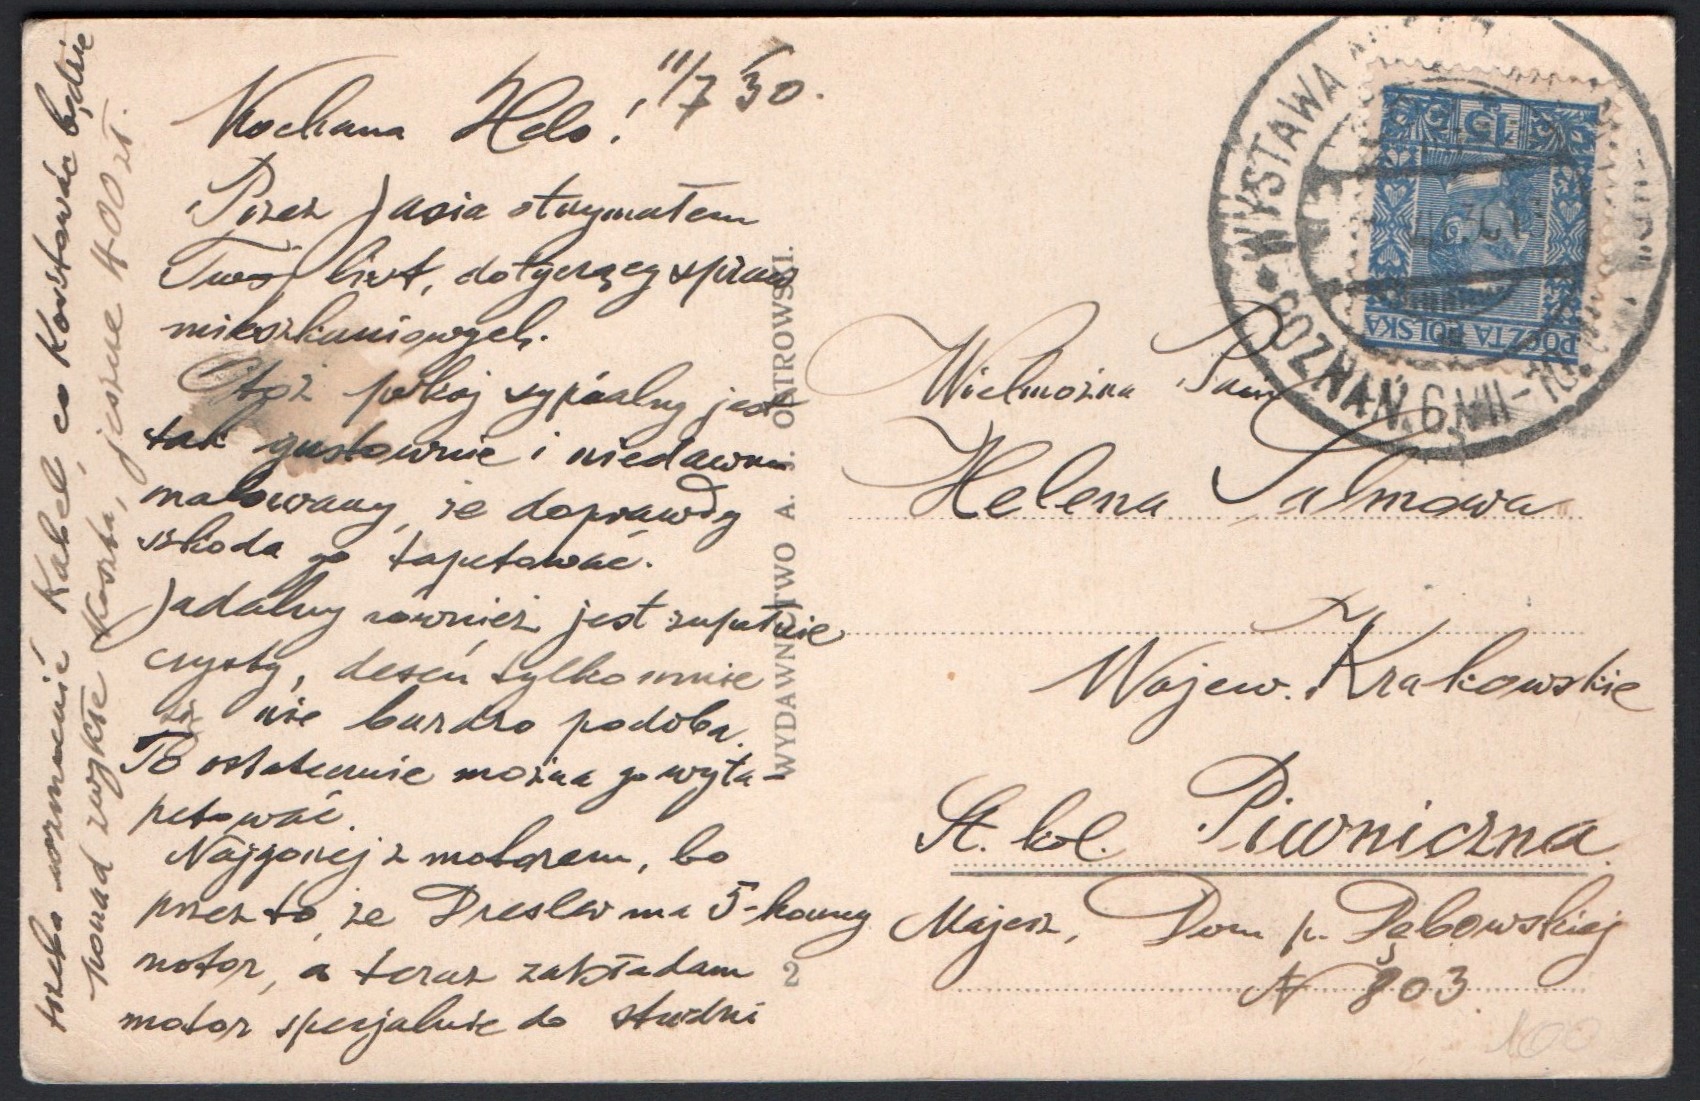 11/7 30.
Kochana Helo!
Przez Jasia otrzymałem
Twój list, dotyczący spraw
mieszkaniowych.
Otóż pokój sypialny jest
tak gustownie i niedawno
malowany, że doprawdy
szkoda go tapetować.
Jadalny również jest zupełnie
czysty, deseń tylko mnie
się nie bardzo podoba.
To ostatecznie można go wyta-
petować.
Najgorzej z motorem, bo
przez to, że Dresler ma 5-konny
motor, a teraz zakładam
motor specjalnie do studni
trzeba wzmocnić kabel, co kosztować będzie
ponad zwykłe koszta, jeszcze 400 zł.
WYDAWNICTWO A. J. OSTROWSKI.
2
WYSTAWA
POZNAŃ. 6.VII-
POCZTA POLSKA
Wielmożna Pani
Helena Salmowa
Wojew. Krakowskie
St. kol. Piwniczna.
Majerz, Dom p. Dąbowskiej
N 803.
100